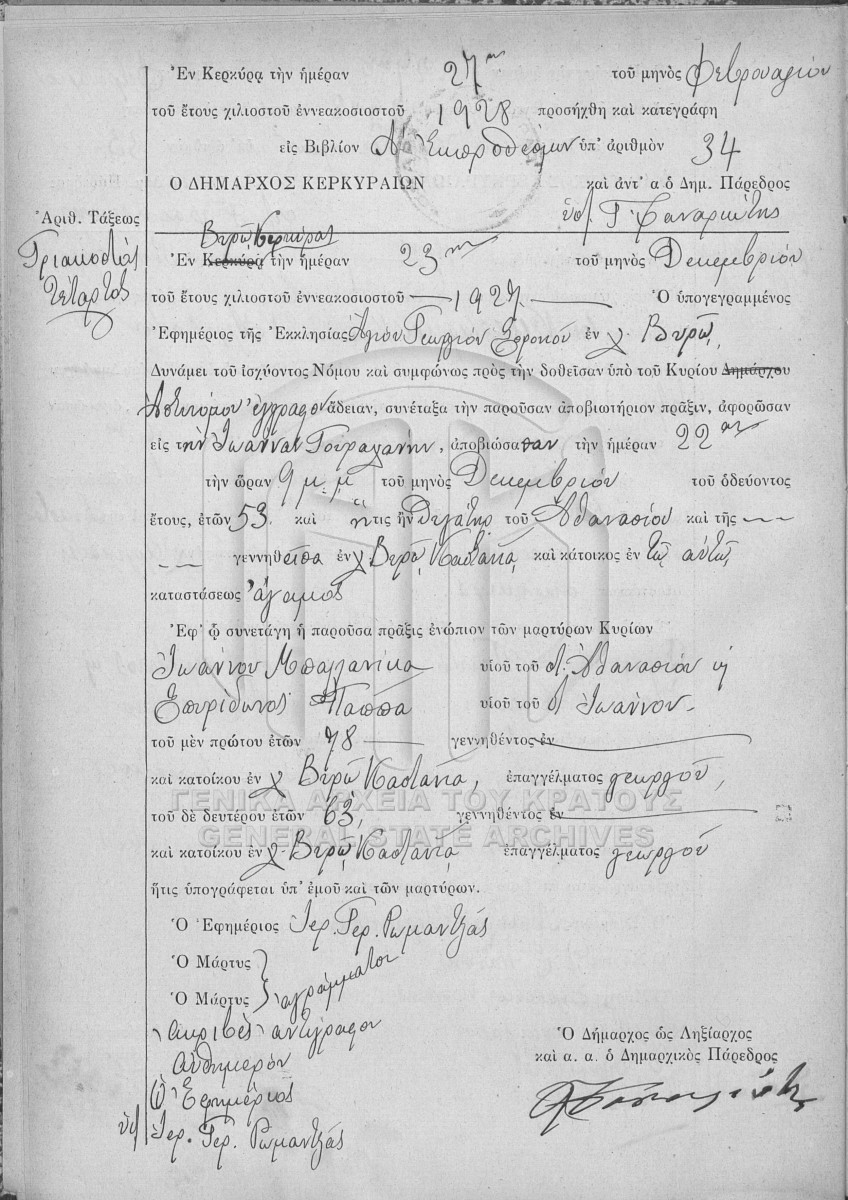 Ἐν Κερκύρᾳ τὴν ἡμέραν 27ην τοῦ μηνὸς Φεβρουαρίου
τοῦ ἔτους χιλιοστοῦ ἐννεακοσιοστοῦ 1928 προσήχθη καὶ κατεγράφη
εἰς Βιβλίον Α' Ἐκπροθέσμων ὑπ' ἀριθμὸν 34
Ο ΔΗΜΑΡΧΟΣ ΚΕΡΚΥΡΑΙΩΝ καὶ ἀντ' α ὁ Δημ. Πάρεδρος
Ἀριθ. Τάξεως
Τριακοστὸς
τέταρτος
Βυρῷ Κερκύρας
Ἐν Κερκύρᾳ τὴν ἡμέραν 23ην τοῦ μηνὸς Δεκεμβρίου
τοῦ ἔτους χιλιοστοῦ ἐννεακοσιοστοῦ — 1927 — Ὁ ὑπογεγραμμένος
Ἐφημέριος τῆς Ἐκκλησίας Ἁγίου Γεωργίου ἐν χ. Βυρῷ,
Δυνάμει τοῦ ἰσχύοντος Νόμου καὶ συμφώνως πρὸς τὴν δοθεῖσαν ὑπὸ τοῦ Κυρίου Δημάρχου
Ἀστυνόμου ἔγγραφον ἄδειαν, συνέταξα τὴν παροῦσαν ἀποβιωτήριον πρᾶξιν, ἀφορῶσαν
εἰς τὴν Ἰωάνναν, ἀποβιώσασαν τὴν ἡμέραν 22αν
τὴν ὥραν 9 μ.μ. τοῦ μηνὸς Δεκεμβρίου τοῦ ὁδεύοντος
ἔτους, ἐτῶν 53. καὶ ἥτις ἦν θυγάτηρ τοῦ Ἀθανασίου καὶ τῆς —
— γεννηθεῖσα ἐν χ. Βυρῷ Καστανιᾷ, καὶ κάτοικος ἐν τῷ αὐτῷ
καταστάσεως Ἄγαμος
Ἐφ' ᾧ συνετάγη ἡ παροῦσα πρᾶξις ἐνώπιον τῶν μαρτύρων Κυρίων
Ἰωάννου Μπαγανίκα υἱοῦ τοῦ π. Ἀθανασίου κ
Σπυρίδωνος Παππᾶ υἱοῦ τοῦ π. Ἰωάννου
τοῦ μὲν πρώτου ἐτῶν 78 — γεννηθέντος ἐν —
καὶ κατοίκου ἐν χ. Βυρῷ Καστανιᾷ, ἐπαγγέλματος γεωργοῦ,
ΓΕΝΙΚΑ ΑΡΧΕΙΑ ΤΟΥ ΚΡΑΤΟΥΣ
τοῦ δὲ δευτέρου ἐτῶν 63, γεννηθέντος ἐν —
GENERAL STATE ARCHIVES
καὶ κατοίκου ἐν χ. Βυρῷ Καστανιᾷ, ἐπαγγέλματος γεωργοῦ
ἥτις ὑπογράφεται ὑπ' ἐμοῦ καὶ τῶν μαρτύρων.
Ὁ Ἐφημέριος Ἱερ. Γερ. Ρωμαντζᾶς
Ὁ Μάρτυς
Ὁ Μάρτυς } ἀγράμματοι
Ἀκριβὲς ἀντίγραφον
αὐθημερὸν
Ὁ Ἐφημέριος
Ἱερ. Γερ. Ρωμαντζᾶς
Ὁ Δήμαρχος ὡς Ληξίαρχος
καὶ α. α. ὁ Δημαρχικὸς Πάρεδρος